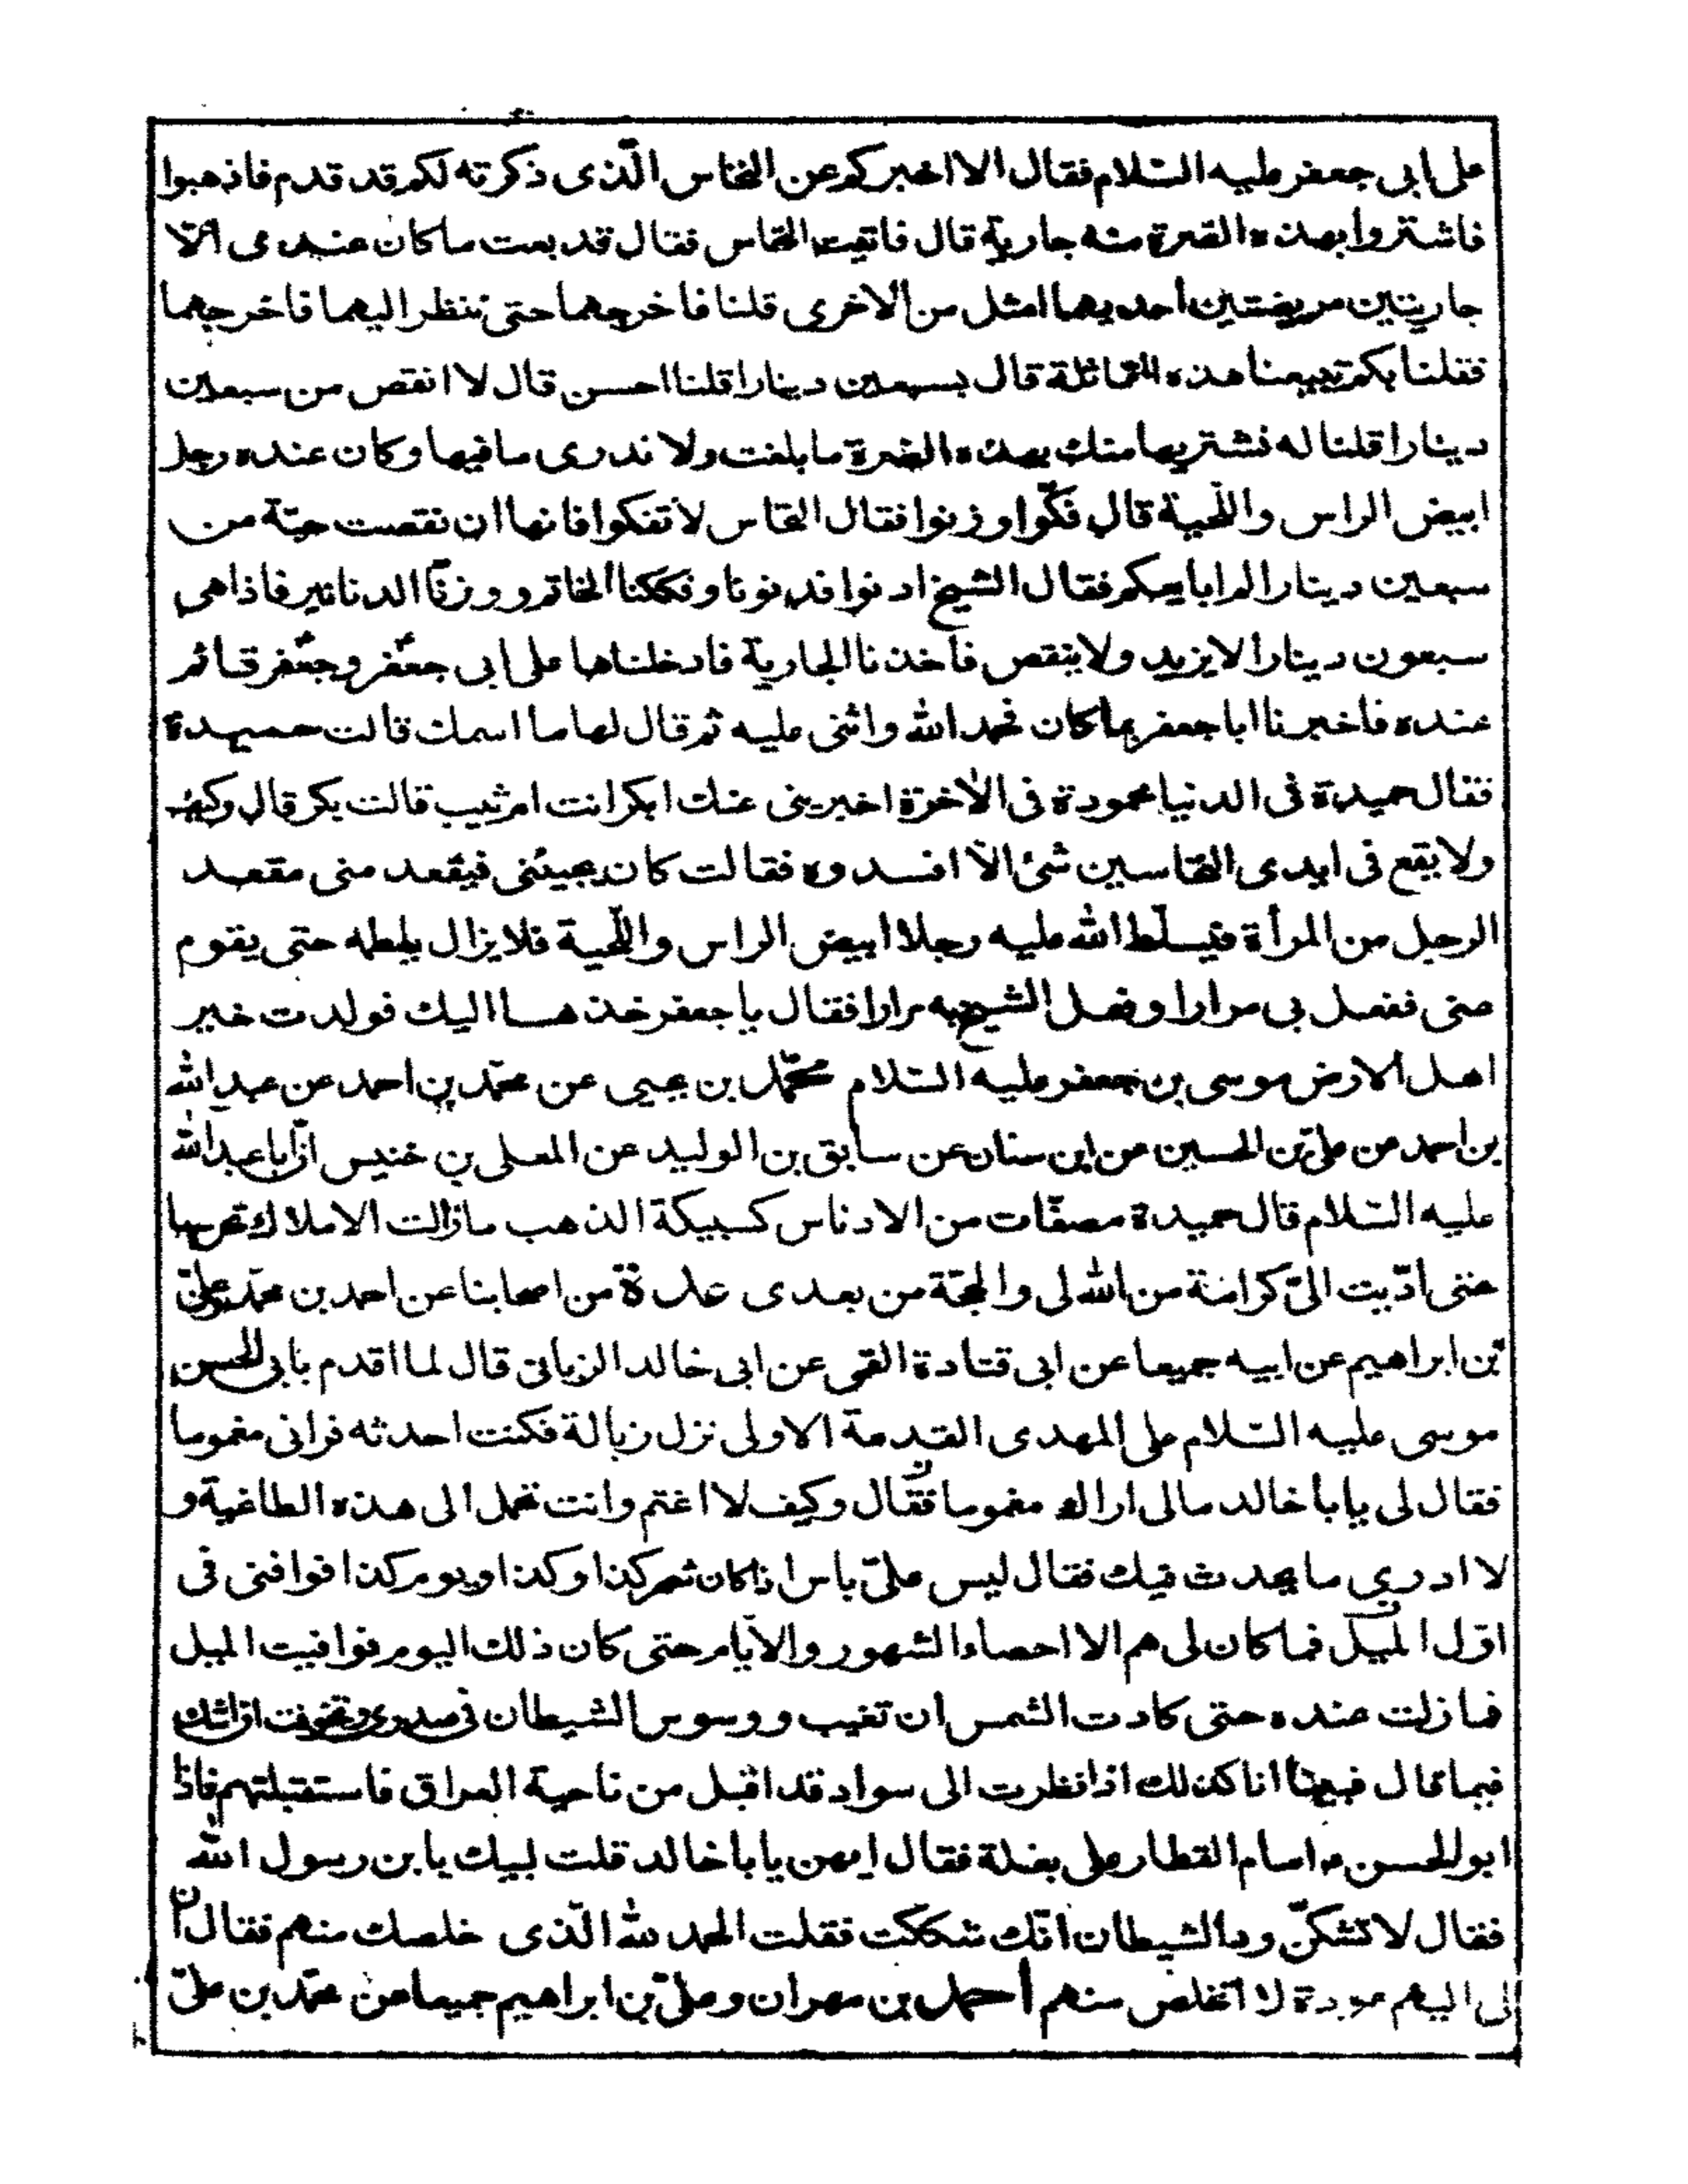 على ابى جعفر عليه السّلام فقال الا اخبركم عن النخاس الّذى ذكرته لكم قد قدم فاذهبوا
فاشتروا بهذه الصّرة منه جارية قال فاتيت النخاس فقال قد بعت ما كان عندى الّا
جاريتين مريضتين احديهما امثل من الاخرى قلنا فاخرجهما حتى ننظر اليهما فاخرجهما
فقلنا بكم تبيعنا هذه المتماثلة قال بسبعين دينارا قلنا احسن قال لا انقص من سبعين
دينارا قلنا له نشتريها منك بهذه الصّرة ما بلغت ولا ندرى ما فيها وكان عنده رجل
ابيض الراس واللّحية قال فكّوا وزنوا فقال النخاس لا تفكوا فانها ان نقصت حبّة من
سبعين دينارا لم ابايعكم فقال الشيخ ادنوا فدنونا وفككنا الخاتم ووزنّا الدنانير فاذا هى
سبعون دينارا لا يزيد ولا ينقص فاخذنا الجارية فادخلناها على ابى جعفر وجعفر قائم
عنده فاخبرنا ابا جعفر بما كان فحمد الله واثنى عليه ثم قال لها ما اسمك قالت حميدة
فقال حميدة فى الدنيا محمودة فى الاخرة اخبرينى عنك ابكر انت ام ثيب قالت بكر قال وكيف
ولا يقع فى ايدى النخاسين شئ الّا افسدوه فقالت كان يجيئنى فيقعد منى مقعد
الرجل من المرأة فيسلّط الله عليه رجلا ابيض الراس واللّحية فلا يزال يلطمه حتى يقوم
منى ففعل بى مرارا وفعل الشيخ به مرارا فقال يا جعفر خذها اليك فولدت خير
اهل الارض موسى بن جعفر عليه السّلام محمّد بن يحيى عن محمّد بن احمد عن عبد الله
بن احمد عن علىّ بن الحسين عن ابن سنان عن سابق بن الوليد عن المعلى بن خنيس انّ ابا عبد الله
عليه السّلام قال حميدة مصفّات من الادناس كسبيكة الذهب ما زالت الاملاك تحرسها
حتى ادّيت الىّ كرامة من الله لى والحجّة من بعدى عدة من اصحابنا عن احمد بن محمّد وعلىّ
بن ابراهيم عن ابيه جميعا عن ابى قتادة القمى عن ابى خالد الزبالى قال لما اقدم بابى الحسن
موسى عليه السّلام على المهدى القدمة الاولى نزل زبالة فكنت احدثه فرانى مغموما
فقال لى يابا خالد مالى اراك مغموما فقال وكيف لا اغتم وانت تحمل الى هذه الطاغية و
لا ادرى ما يحدث فيك فقال ليس علىّ باس اذا كان شهر كذا وكذا ويوم كذا فوافنى فى
اوّل الميل فما كان لى هم الا احصاء الشهور والايّام حتى كان ذلك اليوم فوافيت الميل
فما زلت عنده حتى كادت الشمس ان تغيب ووسوس الشيطان فى صدرى وتخوفت ان اشك
فيما قال فبينا انا كذلك اذا نظرت الى سواد قد اقبل من ناحية العراق فاستقبلتهم فاذا
ابو الحسن م امام القطار على بغلة فقال ايهن يابا خالد قلت لبيك يابن رسول الله
فقال لا تشكنّ ود الشيطان انّك شككت فقلت الحمد لله الّذى خلصك منهم فقال انّ
لى اليهم عودة لا اتخلص منهم أحمد بن مهران وعلىّ بن ابراهيم جميعا عن محمّد بن علىّ